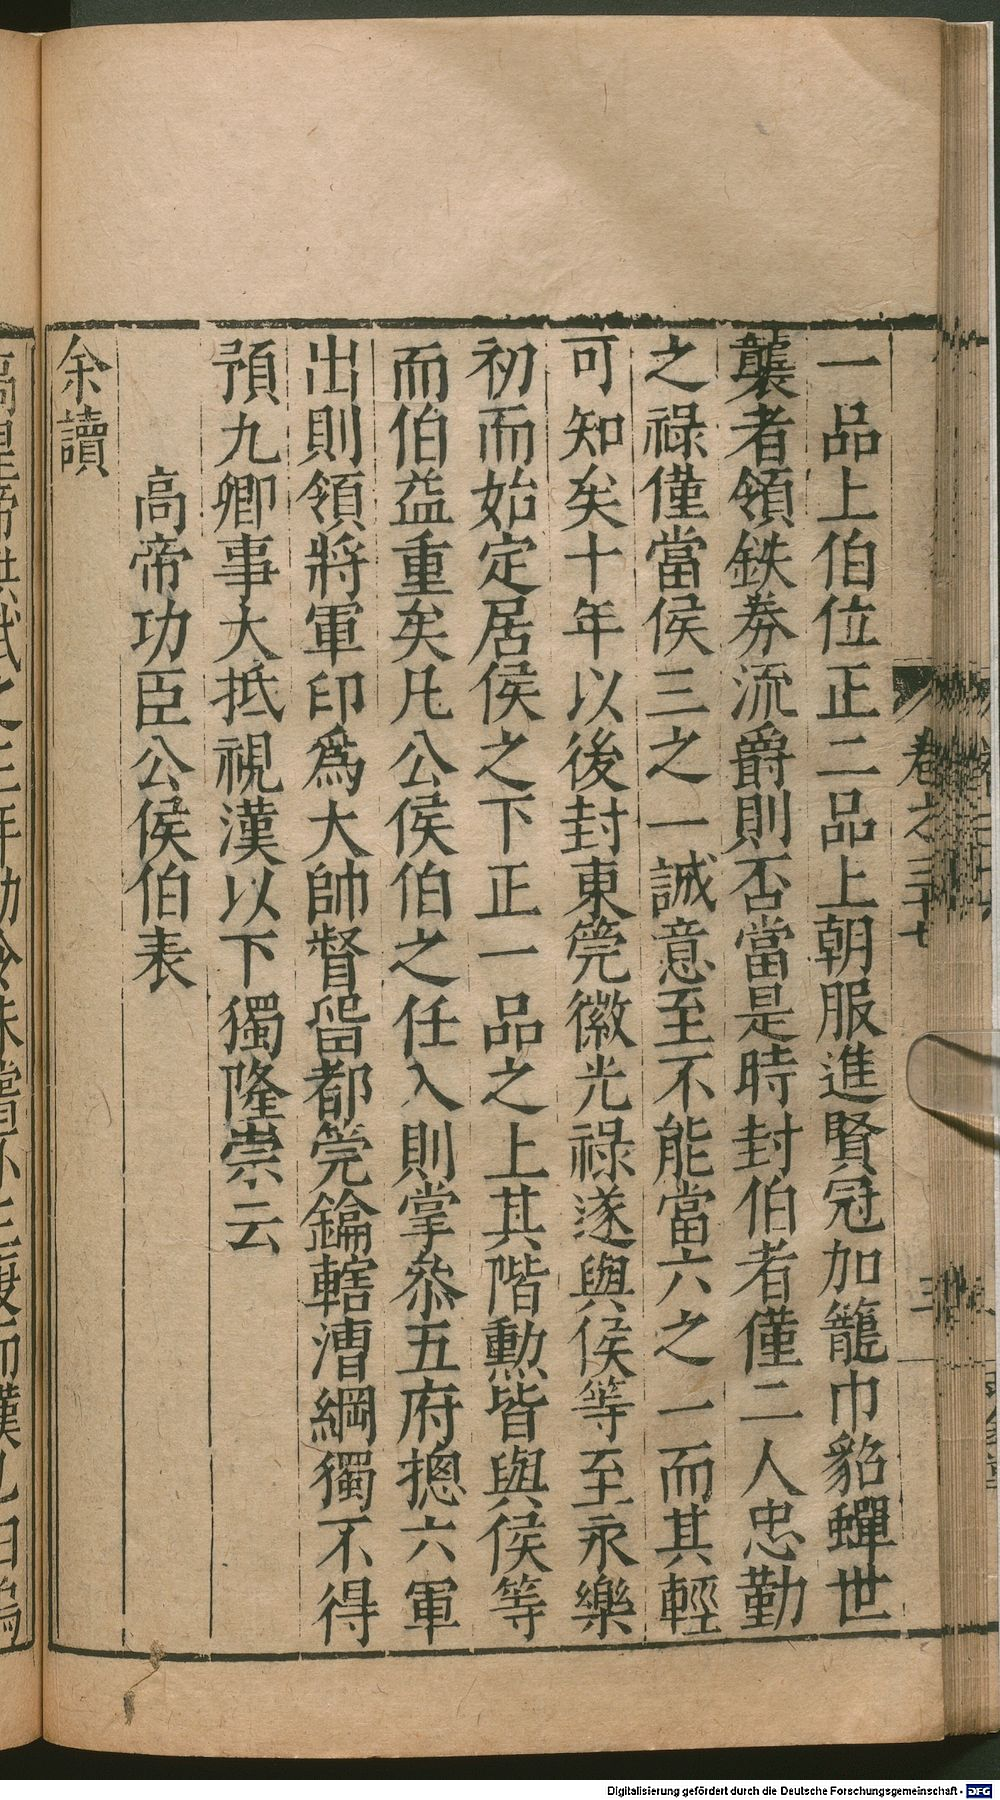 一品上伯位正二品上朝服進賢冠加籠巾貂蟬世
襲者領鉄券流爵則否當是時封伯者僅二人忠勤
之祿僅當侯三之一誠意至不能當六之一而其輕
可知矣十年以後封東筦徽光祿遂與侯等至永樂
初而始定居侯之下正一品之上其階勲皆與侯等
而伯益重矣凡公侯伯之任入則掌叅五府揔六軍
出則領將軍印爲大帥督留都筦鑰轄漕綱獨不得
預九卿事大抵視漢以下獨隆崇云
高帝功臣公侯伯表
余讀
卷之三十七
三